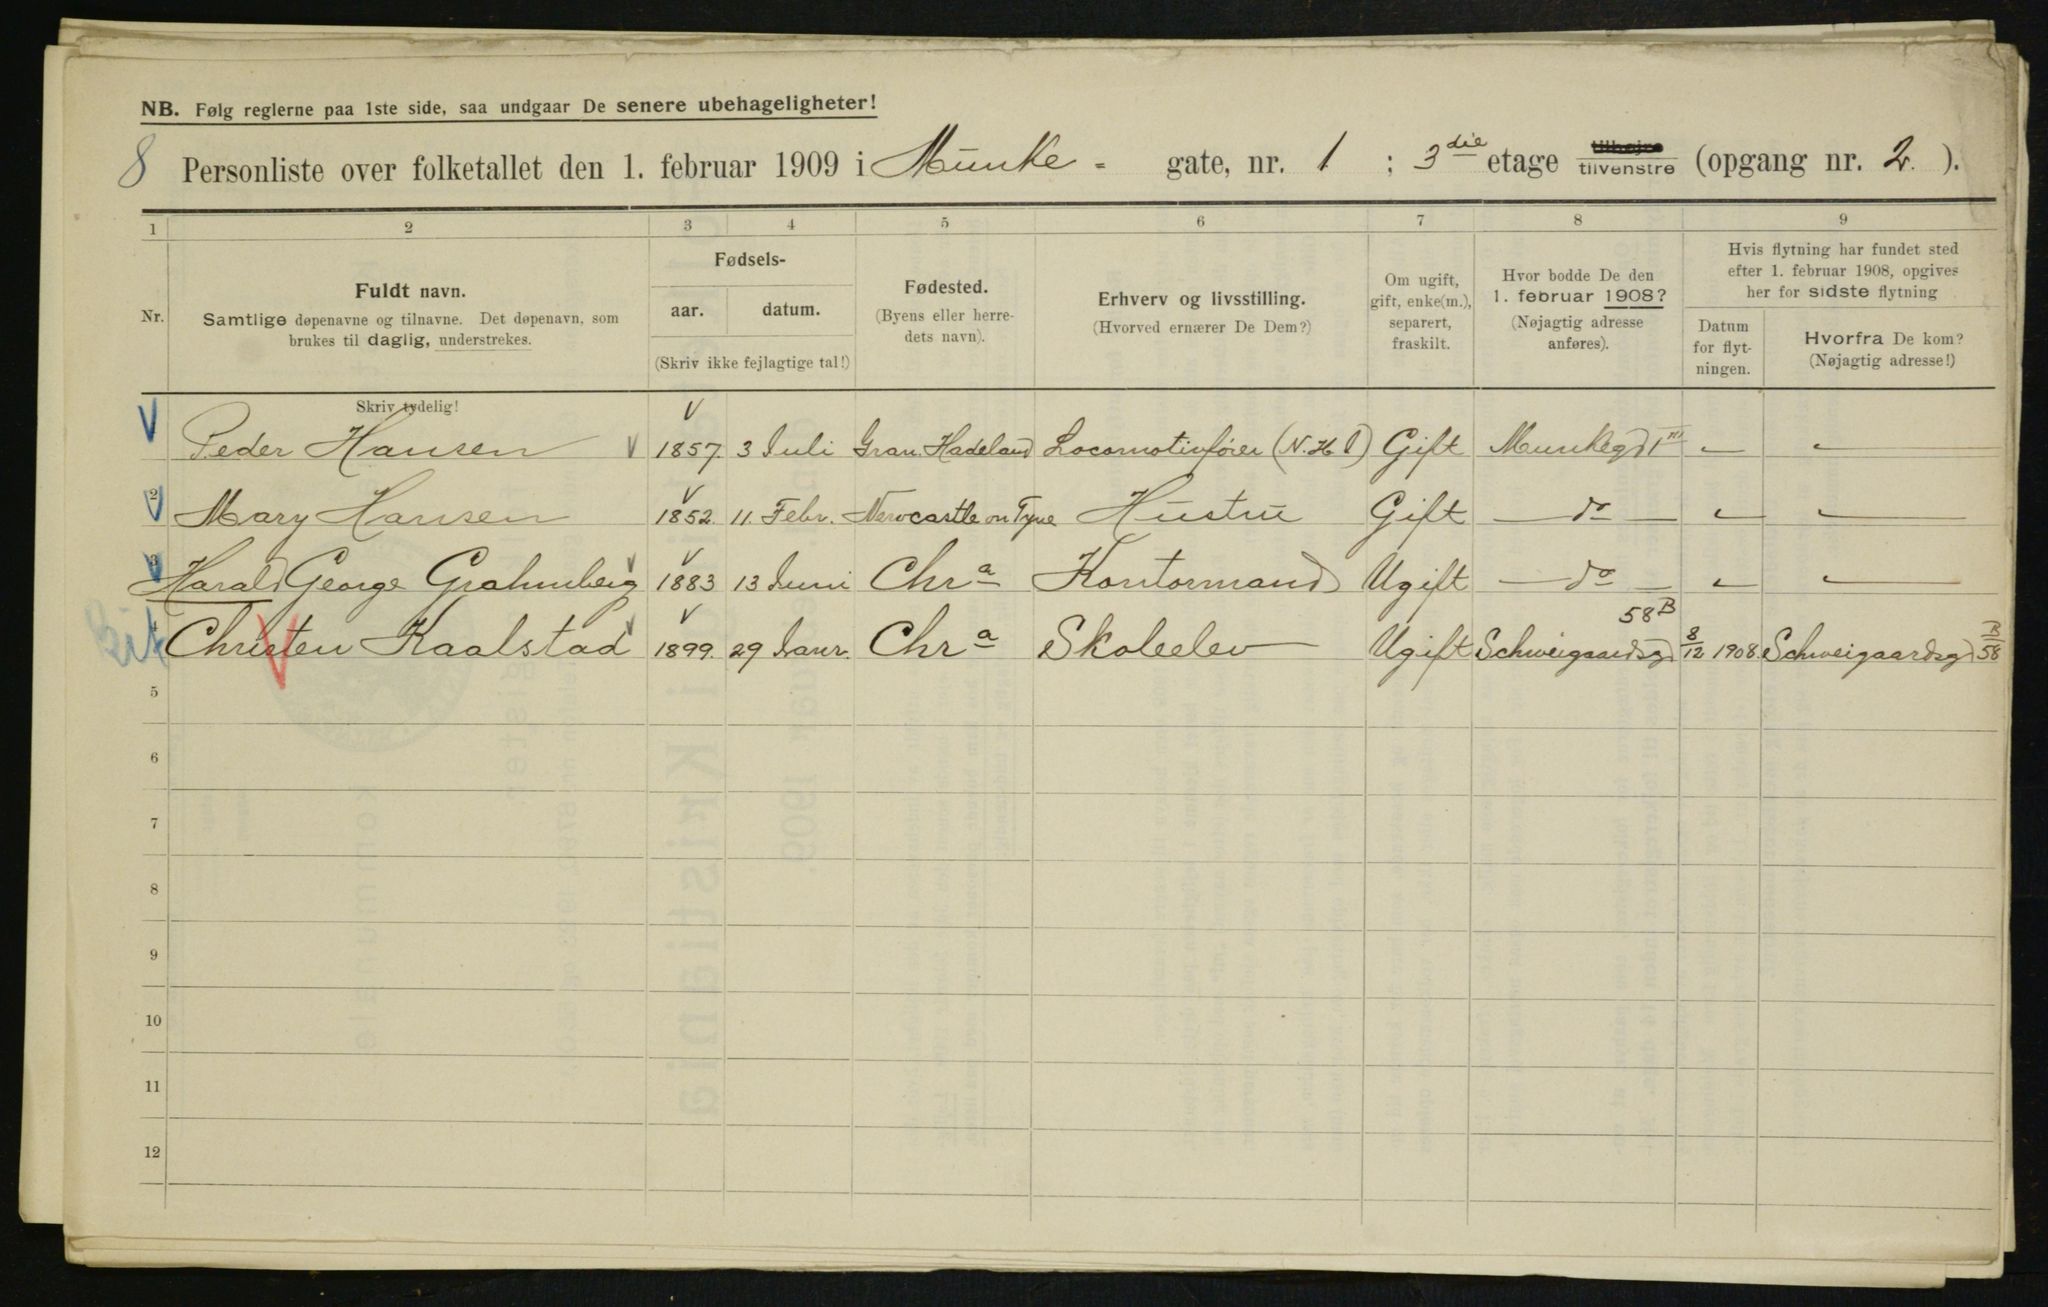 NB. Følg reglerne paa 1ste side, saa undgaar De senere ubehageligheter!
8 Personliste over folketallet den 1. februar 1909 i Munke - gate, nr. 1 ; 3die etage tilhøjre tilvenstre (opgang nr. 2. ).
1 2 3 4 5 6 7 8 9
Nr.
Fuldt navn.
Samtlige døpenavne og tilnavne. Det døpenavn, som
brukes til daglig, understrekes.
Skriv tydelig!
Fødsels-
aar. datum.
(Skriv ikke fejlagtige tal!)
Fødested.
(Byens eller herre-
dets navn).
Erhverv og livsstilling.
(Hvorved ernærer De Dem?)
Om ugift,
gift, enke(m.),
separert,
fraskilt.
Hvor bodde De den
1. februar 1908?
(Nøjagtig adresse
anføres).
Hvis flytning har fundet sted
efter 1. februar 1908, opgives
her for sidste flytning
Datum
for flyt-
ningen.
Hvorfra De kom?
(Nøjagtig adresse!)
Peder Hansen 1857. 3 Juli Gran. Hadeland Locomotivfører (N.H.) Gift Munkegd 1 III
2 Mary Hansen 1852. 11. Febr. Newcastle on Tyne Hustru Gift do
3 Harald George Grahmberg 1883 13 Juni Chra Kontormand Ugift do
Christen Kaalstad 1899. 29 Janr. Chra Skoleelev Ugift Schweigaardsgd 58B 8/12 1908. Schweigaardsgd B/58
5
6
7
8
9
10
11
12